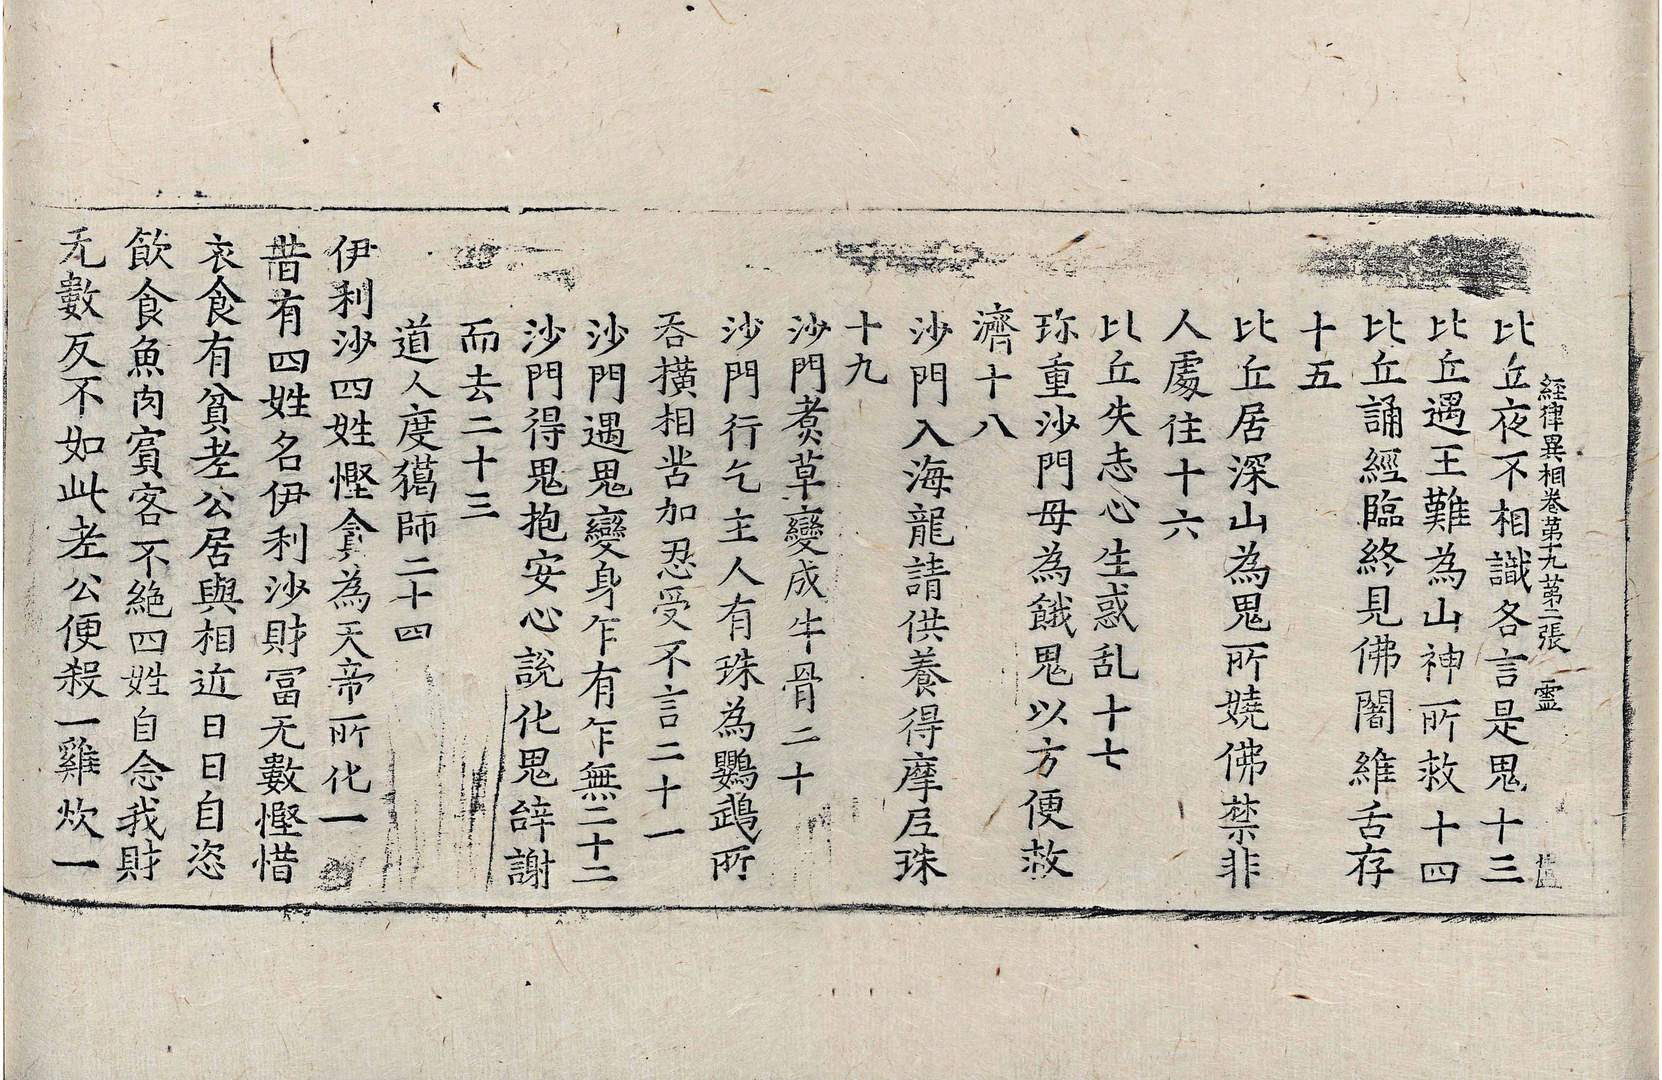 經律異相卷第十九 第二張 靈
比丘夜不相識各言是鬼十三
比丘遇王難為山神所救十四
比丘誦經臨終見佛闍維舌存
十五
比丘居深山為鬼所嬈佛禁非
人處住十六
比丘失志心生惑乱十七
珎重沙門母為餓鬼以方便救
濟十八
沙門入海龍請供養得摩尼珠
十九
沙門煑草變成牛骨二十
沙門行乞主人有珠為鸚鵡所
吞橫相苦加忍受不言二十一
沙門遇鬼變身乍有乍無二十二
沙門得鬼抱安心說化鬼辝謝
而去二十三
道人度獦師二十四
伊利沙四姓慳貪為天帝所化一
昔有四姓名伊利沙財冨无數慳惜
衣食有貧老公居與相近日日自恣
飲食魚肉賔客不絶四姓自念我財
无數反不如此老公便殺一雞炊一